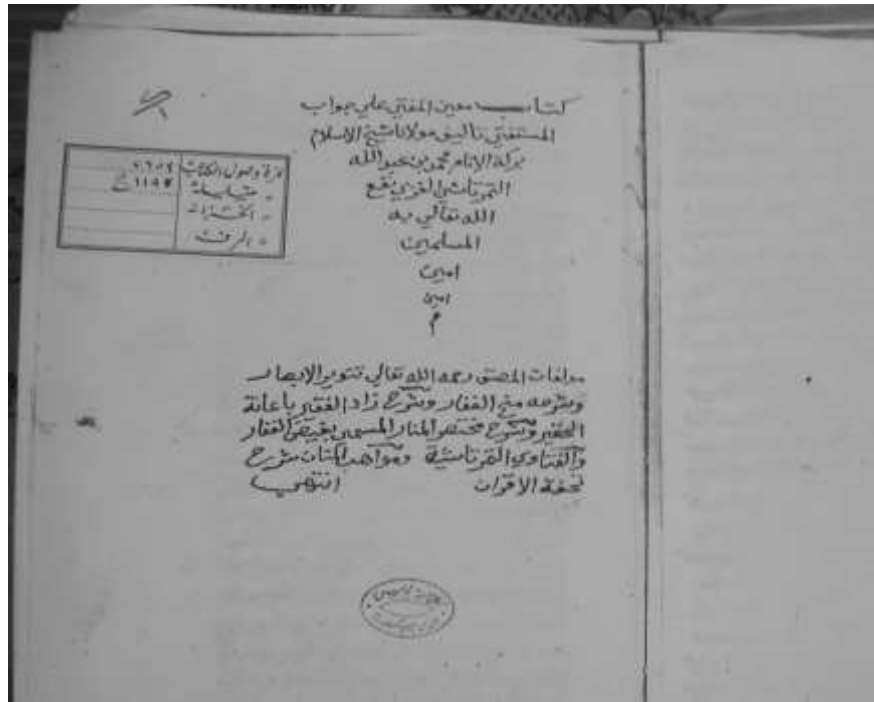 كتاب معين المفتي علي جواب
المستفتي تاليف مولانا شيخ الاسلام
بركة الانام محمد بن عبد الله
التمرتاشي الغزي نفع
الله تعالي به
المسلمين
امين
امين
م
نمرة وصول الكتاب ٢٦٥٤
" متسلسلة ١١٩٣
" الخزانه
" الرف
مولفات المصنف رحمه الله تعالي تنوير الابصار
وشرحه منح الغفار وشرح زاد الفقير باعانة
الحقير وشرح مختصر المنار المسمي بفيض الغفار
والفتاوي التمرتاشية ومواهب المنان شرح
تحفة الاقران انتهي